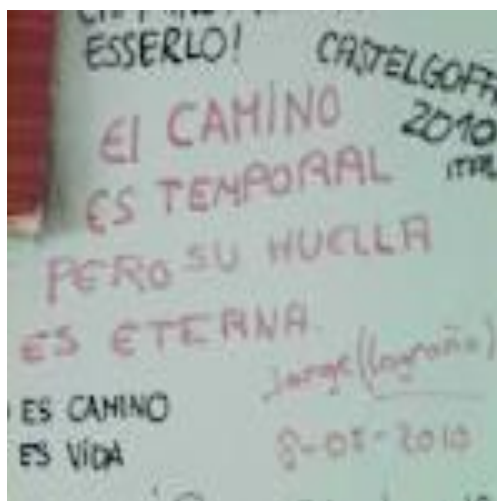 ESSERLO!
CASTELGOFF
2010
El CAMINO
ES TEMPORAL
PERO SU HUELLA
ES ETERNA.
Jorge (Logroño)
8-05-2010
ES CAMINO
ES VIDA